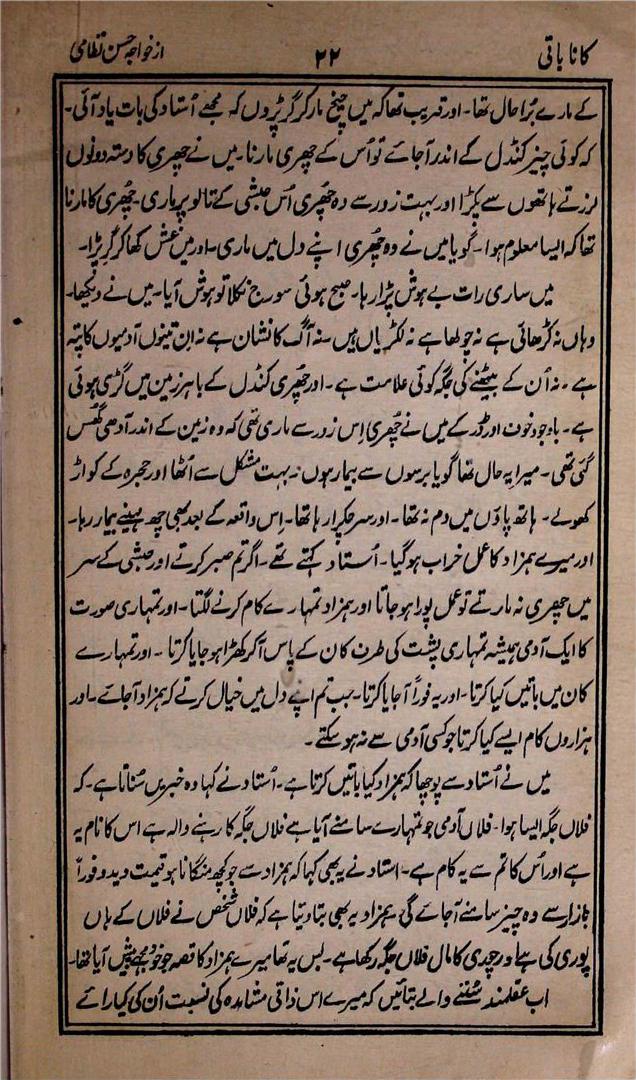 کانا باتی
۲۲
از خواجہ حسن نظامی
کے مارے بُرا حال تھا۔ اور قریب تھا کہ میں چیخ مار کر گر پڑوں کہ مجھے اُستاد کی بات یاد آئی۔
کہ کوئی چیز کنڈل کے اندر آجائے تو اُس کے چھری مارنا۔ میں نے چھری کا دستہ دونوں
لرزتے ہاتھوں سے پکڑا اور بہت زور سے وہ چھُری اُس حبشی کے تالو پر ماری۔ چھُری کا مارنا
تھا کہ ایسا معلوم ہوا۔ گویا میں نے وہ چھُری اپنے دل میں ماری۔ اور میں غش کھا کر گر پڑا۔
میں ساری رات بے ہوش پڑا رہا۔ صبح ہوئی سورج نکلا تو ہوش آیا۔ میں نے دیکھا۔
وہاں نہ کڑھائی ہے نہ چولھا ہے نہ لکڑیاں ہیں۔ نہ آگ کا نشان ہے نہ اِن تینوں آدمیوں کا پتہ
ہے۔ نہ اُن کے بیٹھنے کی جگہ کوئی علامت ہے۔ اور چھُری کنڈل کے باہر زمین میں گڑی ہوئی
ہے۔ باوجود خوف اور ڈر کے میں نے چھُری اِس زور سے ماری تھی کہ وہ زمین کے اندر آدھی گھُس
گئی تھی۔ میرا یہ حال تھا گویا برسوں سے بیمار ہوں۔ بہت مشکل سے اُٹھا اور حجرہ کے کواڑ
کھولے۔ ہاتھ پاؤں میں دم نہ تھا۔ اور سر چکرا رہا تھا۔ اِس واقعہ کے بعد بھی چھ مہینے بیمار رہا۔
اور میرے ہمزاد کا عمل خراب ہو گیا۔ اُستاد کہتے تھے۔ اگر تم صبر کرتے اور حبشی کے سر
میں چھری نہ مارتے تو عمل پورا ہو جاتا اور ہمزاد تمہارے کام کرنے لگتا۔ اور تمہاری صورت
کا ایک آدمی ہمیشہ تمہاری پشت کی طرف کان کے پاس آکر کھڑا ہو جایا کرتا۔ اور تمہارے
کان میں باتیں کیا کرتا۔ اور یہ فوراً آجایا کرتا۔ جب تم اپنے دل میں خیال کرتے کہ ہمزاد آجائے۔ اور
ہزاروں کام ایسے کیا کرتا جو کسی آدمی سے نہ ہو سکتے۔
میں نے اُستاد سے پوچھا کہ ہمزاد کیا باتیں کرتا ہے۔ اُستاد نے کہا وہ خبریں سُناتا ہے۔ کہ
فلاں جگہ ایسا ہوا۔ فلاں آدمی جو تمہارے سامنے آیا ہے فلاں جگہ کا رہنے والہ ہے اس کا نام یہ
ہے اور اُس کا تم سے یہ کام ہے۔ استاد نے یہ بھی کہا کہ ہمزاد سے جو کچھ منگانا ہو قیمت دیدو فوراً
بازار سے وہ چیز سامنے آجائے گی۔ ہمزاد یہ بھی بتا دیتا ہے کہ فلاں شخص نے فلاں کے ہاں
چوری کی ہے اور چوری کا مال فلاں جگہ رکھا ہے۔ بس یہ تھا میرے ہمزاد کا قصہ جو خود مجھے پیش آیا تھا۔
اب عقلمند سُننے والے بتائیں کہ میرے اس ذاتی مشاہدہ کی نسبت اُن کی کیا رائے